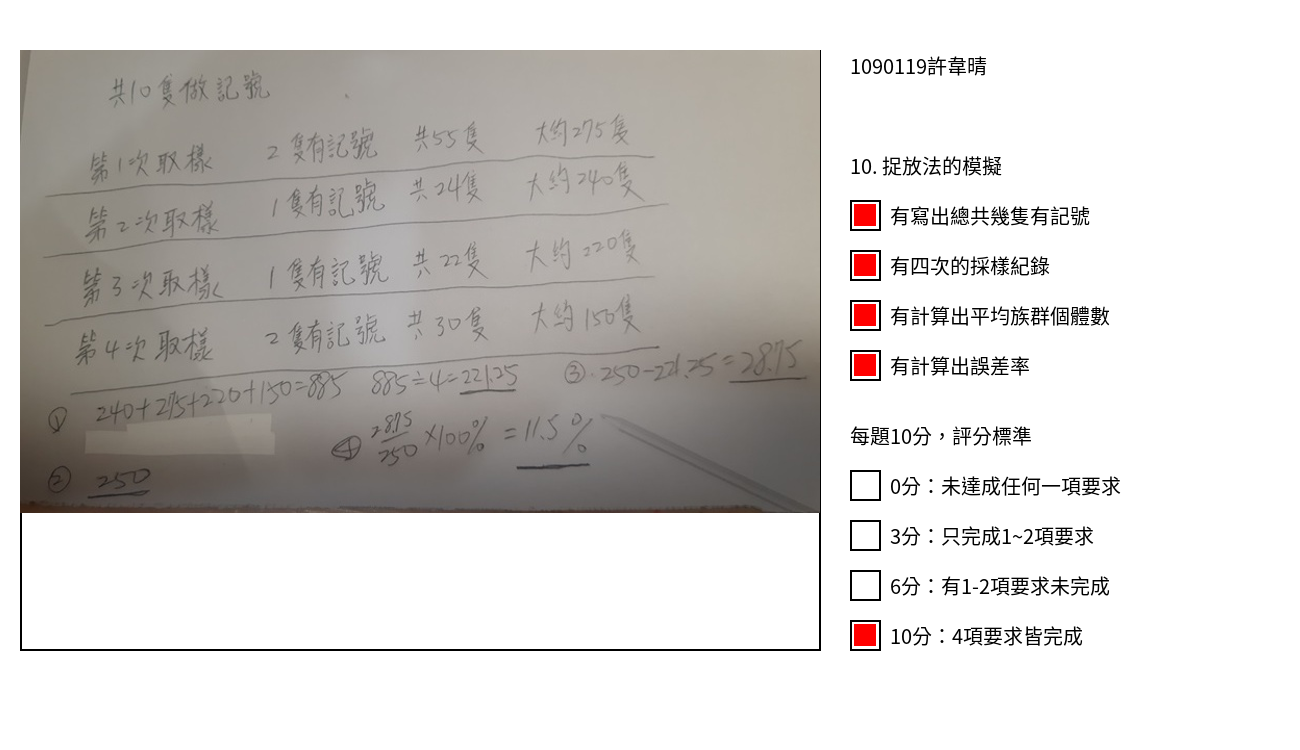 共10隻做記號
第1次取樣 2隻有記號 共55隻 大約275隻
第2次取樣 1隻有記號 共24隻 大約240隻
第3次取樣 1隻有記號 共22隻 大約220隻
第4次取樣 2隻有記號 共30隻 大約150隻
① 240+275+220+150=885 885÷4=221.25 ③ 250-221.25=28.75
④ 28.75/250 ×100% =11.5%
② 250
1090119許韋晴
10. 捉放法的模擬
有寫出總共幾隻有記號
有四次的採樣紀錄
有計算出平均族群個體數
有計算出誤差率
每題10分，評分標準
0分：未達成任何一項要求
3分：只完成1~2項要求
6分：有1-2項要求未完成
10分：4項要求皆完成